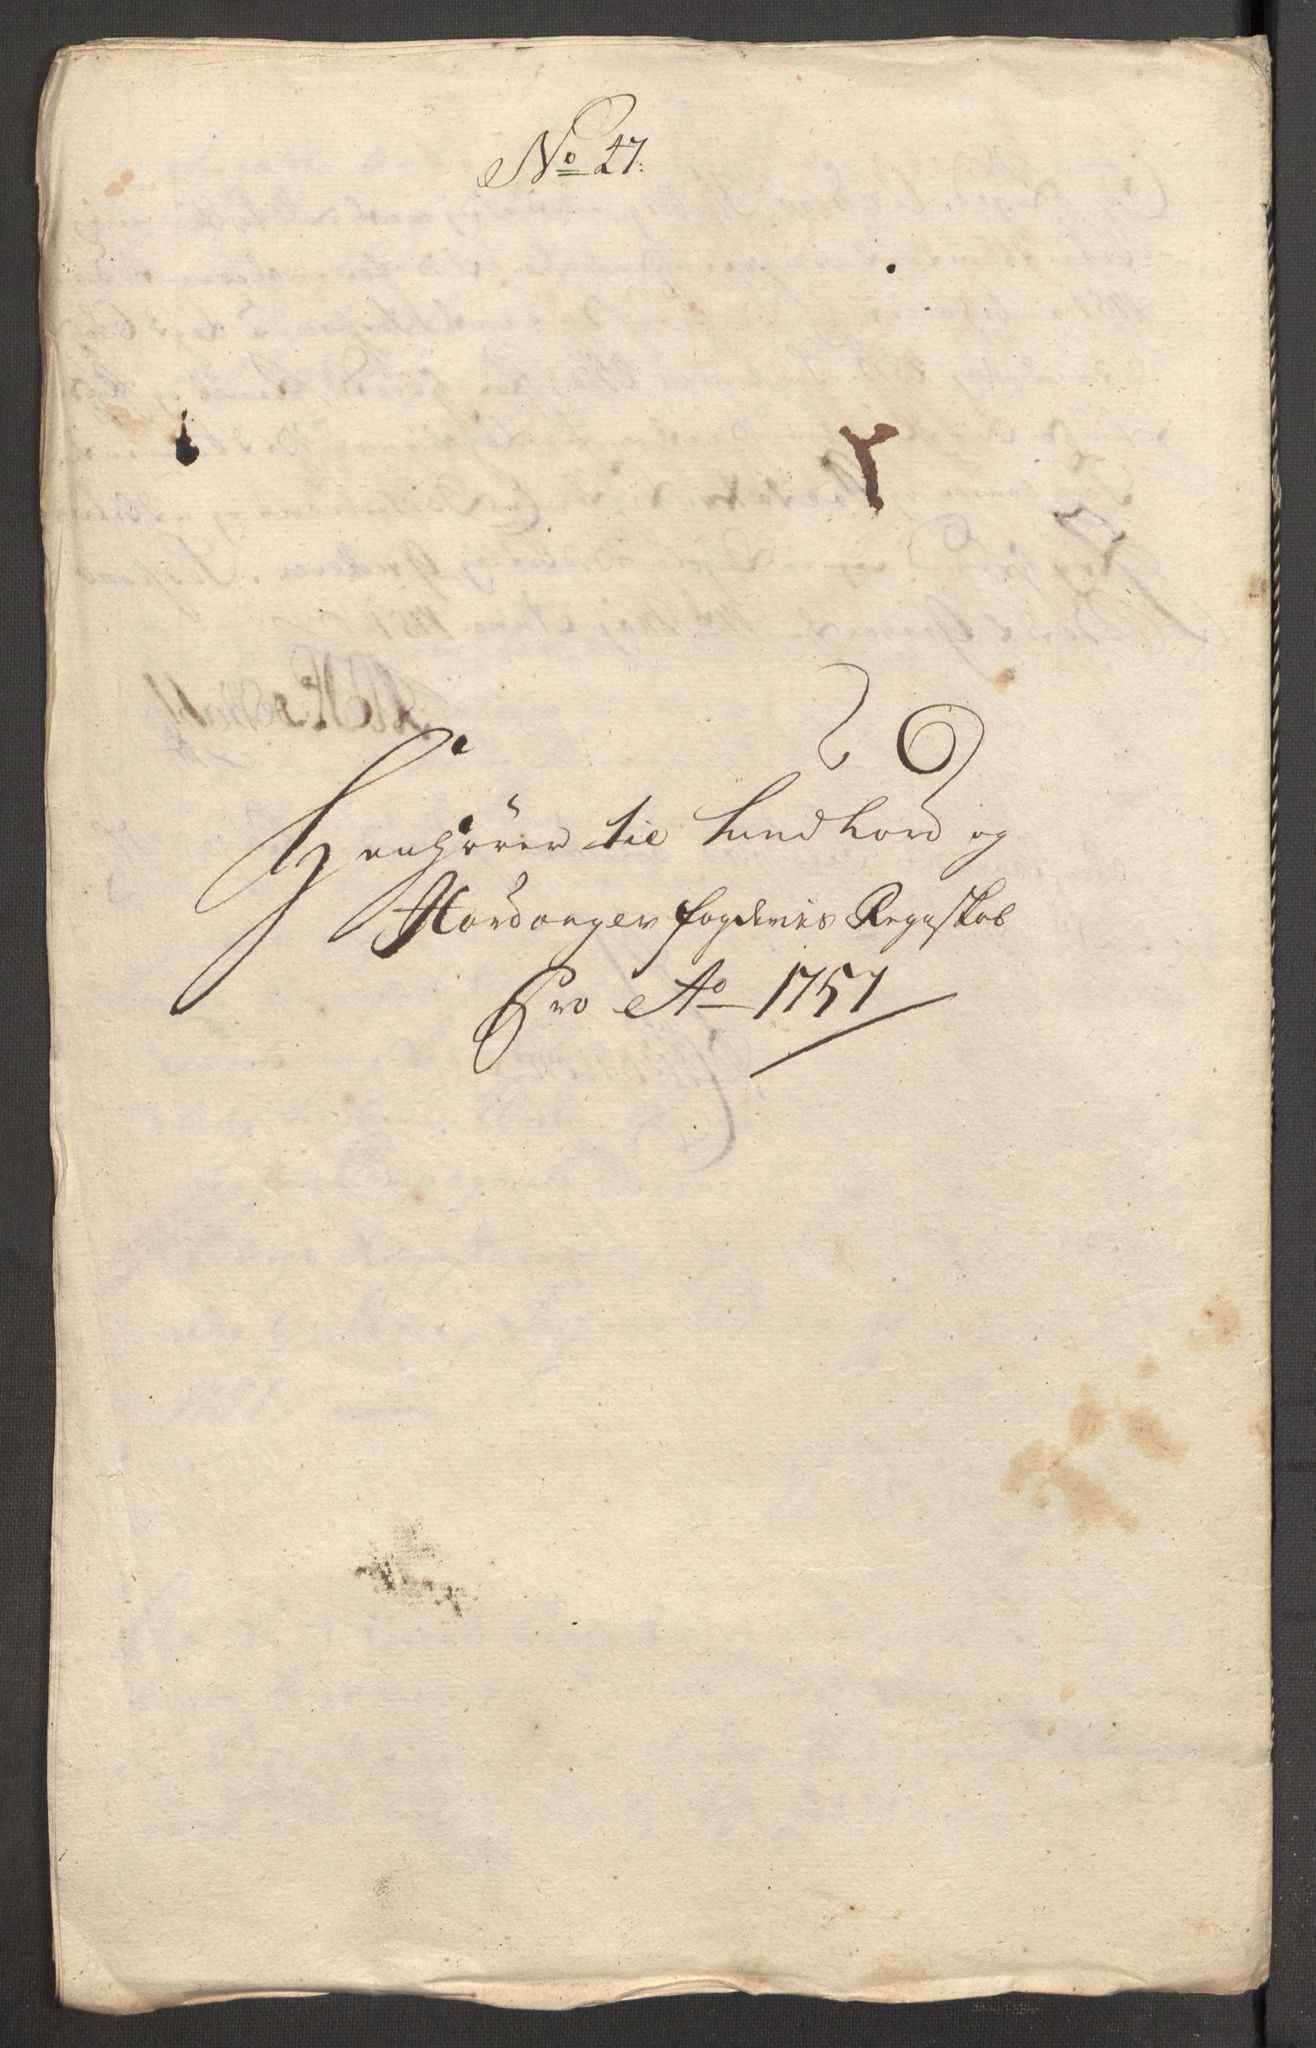 No 27.
Henhörer til Sundhord og
Hardanger fogderies Regnskab
Pro Ao 1757